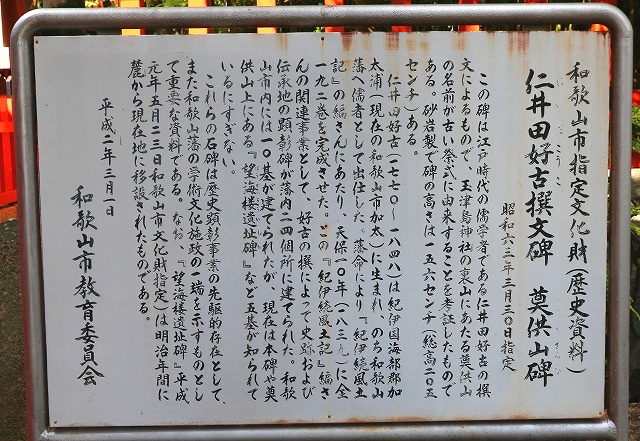 和歌山市指定文化財(歴史資料)
仁井田好古撰文碑 奠供山碑
昭和六三年三月三〇日指定
この碑は江戸時代の儒学者である仁井田好古の撰
文によるもので、玉津島神社の裏山にあたる奠供山
の名前が古い祭式に由来することを考証したもので
ある。砂岩製で碑の高さは一五六センチ(総高二〇五
センチ)ある。
仁井田好古(一七七〇~一八四八)は紀伊国海部郡加
太浦(現在の和歌山市加太)に生まれ、のち和歌山
藩へ儒者として出仕した。藩命により『紀伊続風土
記』の編さんにあたり、天保一〇年(一八三九)に全
一九二巻を完成させた。この『紀伊続風土記』編さ
んの関連事業として、好古の撰によって史跡および
伝承地の顕彰碑が藩内二四個所に建てられた。和歌
山市内には一〇基が建てられたが、現在は本碑や奠
供山上にある『望海楼遺址碑』など五基が知られて
いるにすぎない。
これらの石碑は歴史顕彰事業の先駆的存在として、
また和歌山藩の学術文化施政の一端を示すものとし
て重要な資料である。なお、『望海楼遺址碑』(平成
元年五月二三日和歌山市文化財指定)は明治年間に
麓から現在地に移設されたものである。
平成二年三月一日
和歌山市教育委員会